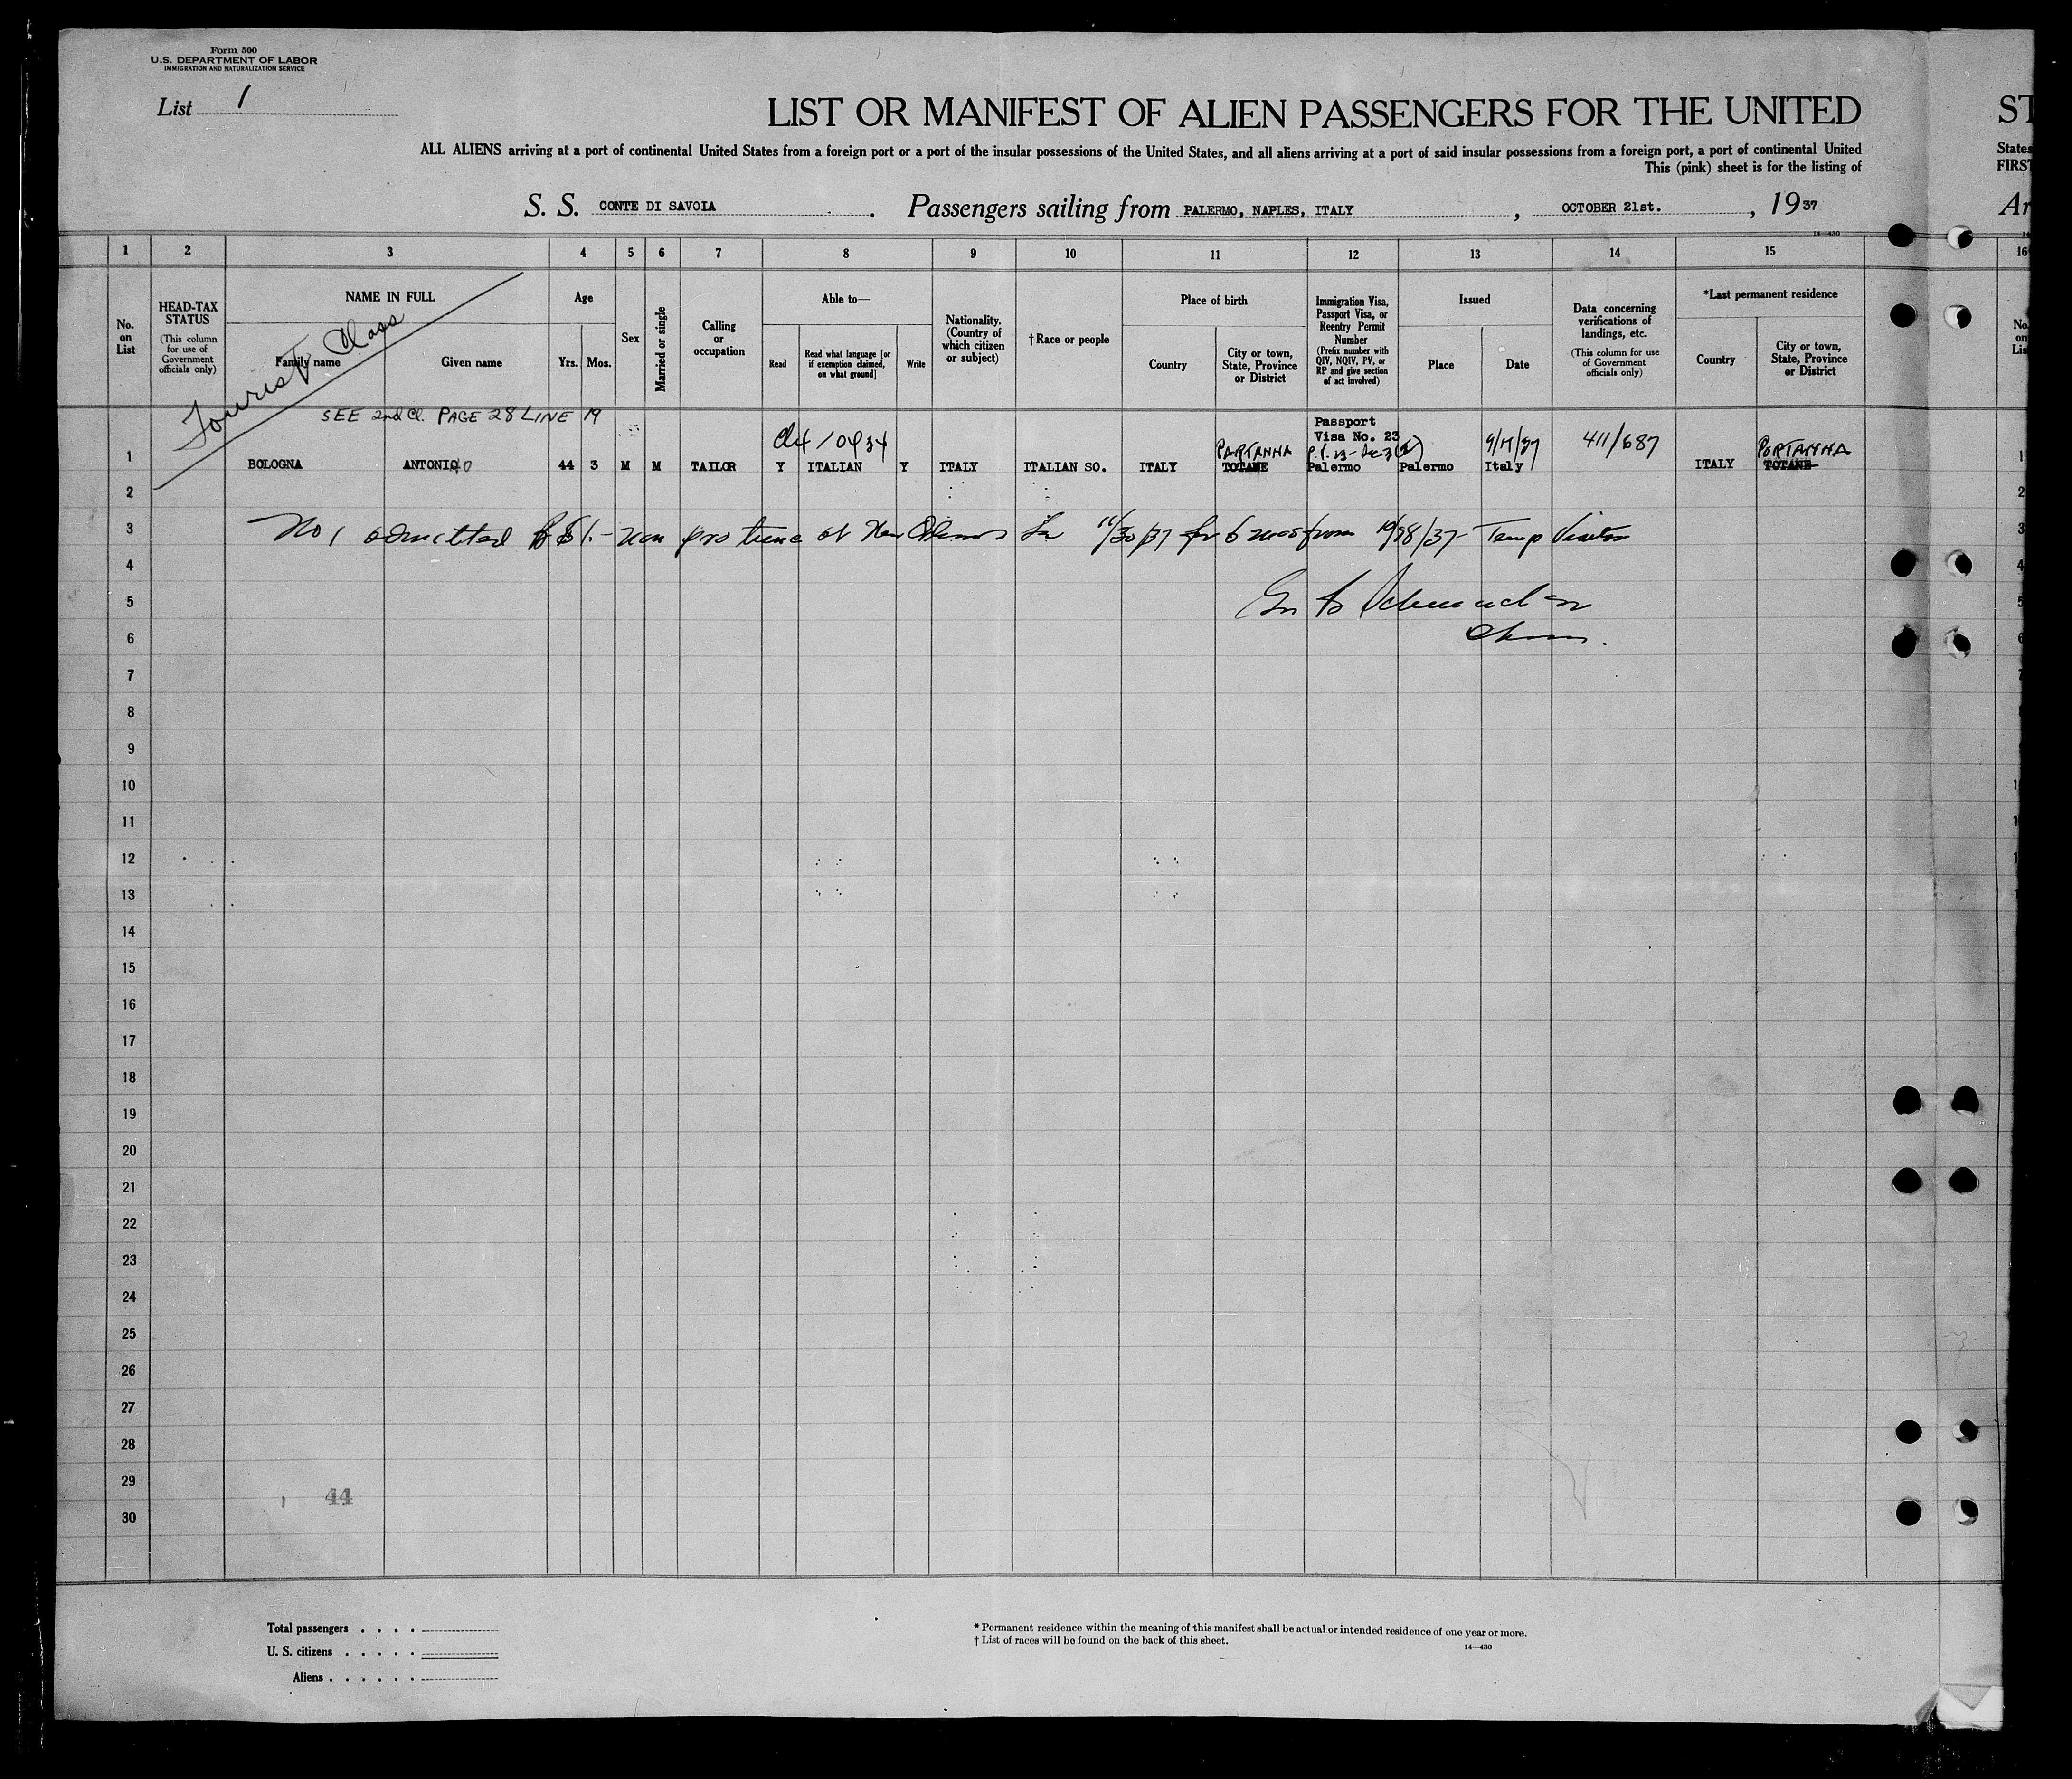 Form 500
U.S. DEPARTMENT OF LABOR
IMMIGRATION AND NATURALIZATION SERVICE
List 1
LIST OR MANIFEST OF ALIEN PASSENGERS FOR THE UNITED ST
ALL ALIENS arriving at a port of continental United States from a foreign port or a port of the insular possessions of the United States, and all aliens arriving at a port of said insular possessions from a foreign port, a port of continental United States
This (pink) sheet is for the listing of FIRST
S. S. CONTE DI SAVOIA. Passengers sailing from PALERMO, NAPLES, ITALY, OCTOBER 21st., 1937 Ar
14—430
1 2 3 4 5 6 7 8 9 10 11 12 13 14 15 16
No. on List
HEAD-TAX STATUS
(This column for use of Government officials only)
NAME IN FULL
Family name Given name
Age
Yrs. Mos.
Sex
Married or single
Calling or occupation
Able to—
Read
Read what language [or if exemption claimed, on what ground]
Write
Nationality. (Country of which citizen or subject)
†Race or people
Place of birth
Country
City or town, State, Province or District
Immigration Visa, Passport Visa, or Reentry Permit Number
(Prefix number with QIV, NQIV, PV, or RP and give section of act involved)
Issued
Place Date
Data concerning verifications of landings, etc.
(This column for use of Government officials only)
*Last permanent residence
Country
City or town, State, Province or District
No. on List
Tourist Class
SEE 2nd Cl. PAGE 28 LINE 19
Passport
Visa No. 23
PARTANNA 9/17/37 411/687 PARTANNA
1 BOLOGNA ANTONIO 44 3 M M TAILOR Y ITALIAN Y ITALY ITALIAN SO. ITALY TOTANE Palermo Palermo Italy ITALY TOTANE 1
2 2
3 No 1 admitted at New Orleans La 11/30/37 for 6 mos from 10/28/37 - Temp Visitor 3
4 4
5 5
6 6
7 7
8 8
9
10
11
12
13
14
15
16
17
18
19
20
21
22
23
24
25
26
27
28
29
44
30
Total passengers . . . .
U. S. citizens . . . . .
Aliens . . . . . .
* Permanent residence within the meaning of this manifest shall be actual or intended residence of one year or more.
† List of races will be found on the back of this sheet.
14—430